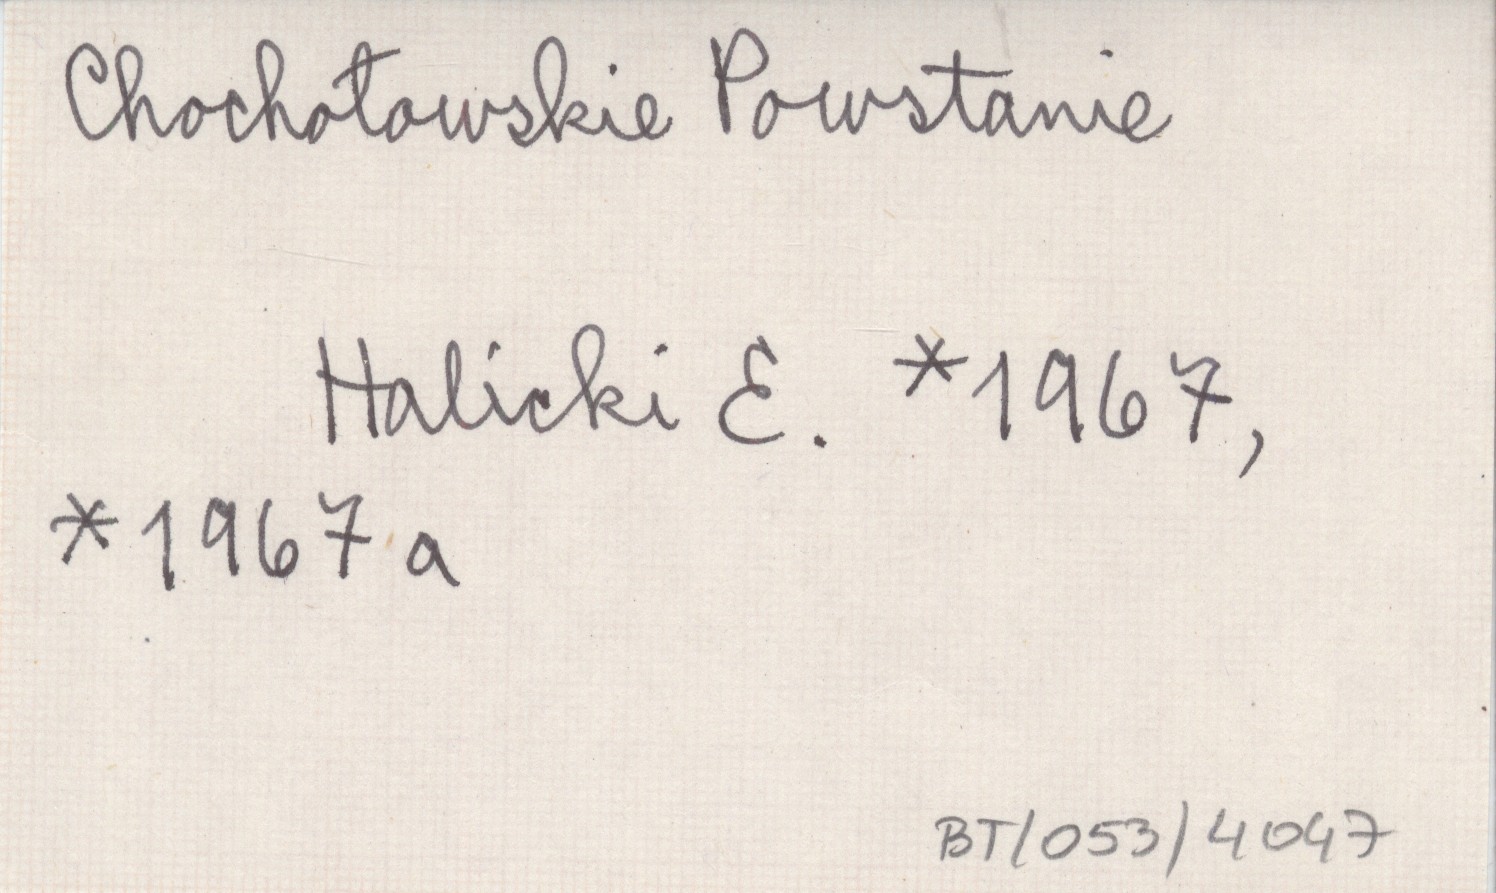 Chochołowskie Powstanie
Halicki E. *1967,
*1967a
BT/053/4047